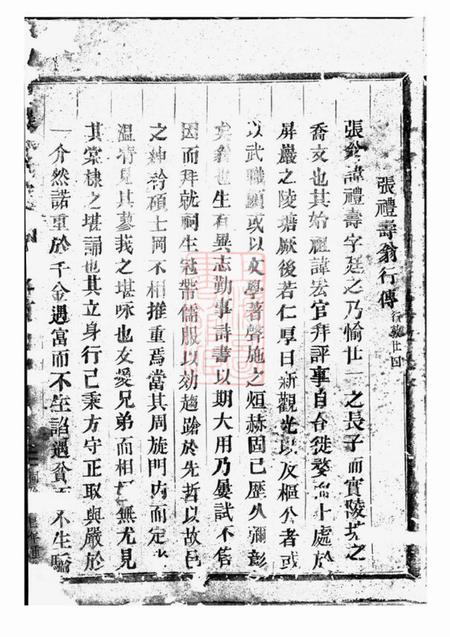 張禮壽翁行傳
張翁諱禮壽字廷之乃愉廿一之長子而實陵坑之
喬文也其始祖諱宏官拜評事自合徙婺卜處於
屏巖之陵塘厥後若仁厚日新觀光以及樞公者或
以武職顯或以文學著聲施之烜赫固已歷久彌彰
矣翁也生有異志勤事詩書以期大用乃屢試不售
因而拜就祠生冠帶儒服以効趨蹌於先哲以故邑
之紳衿碩士罔不相推重焉當其周旋門內而定
溫凊見其蓼我之堪咏也友愛兄弟而相 無尤見
其棠棣之堪誦也其立身行己秉方守正取與嚴於
一介然諾重於千金遇富而不生諂遇貧 不生驕